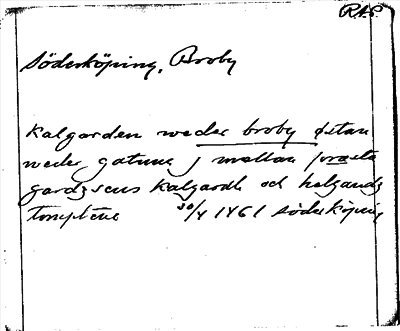 R.A.P.
Söderköping, Broby
Kalgarden weder broby østan
weder gatune j mellan præste
gardzsens kalgardh och helgandz
tompterne 30/4 1461 Söderköping